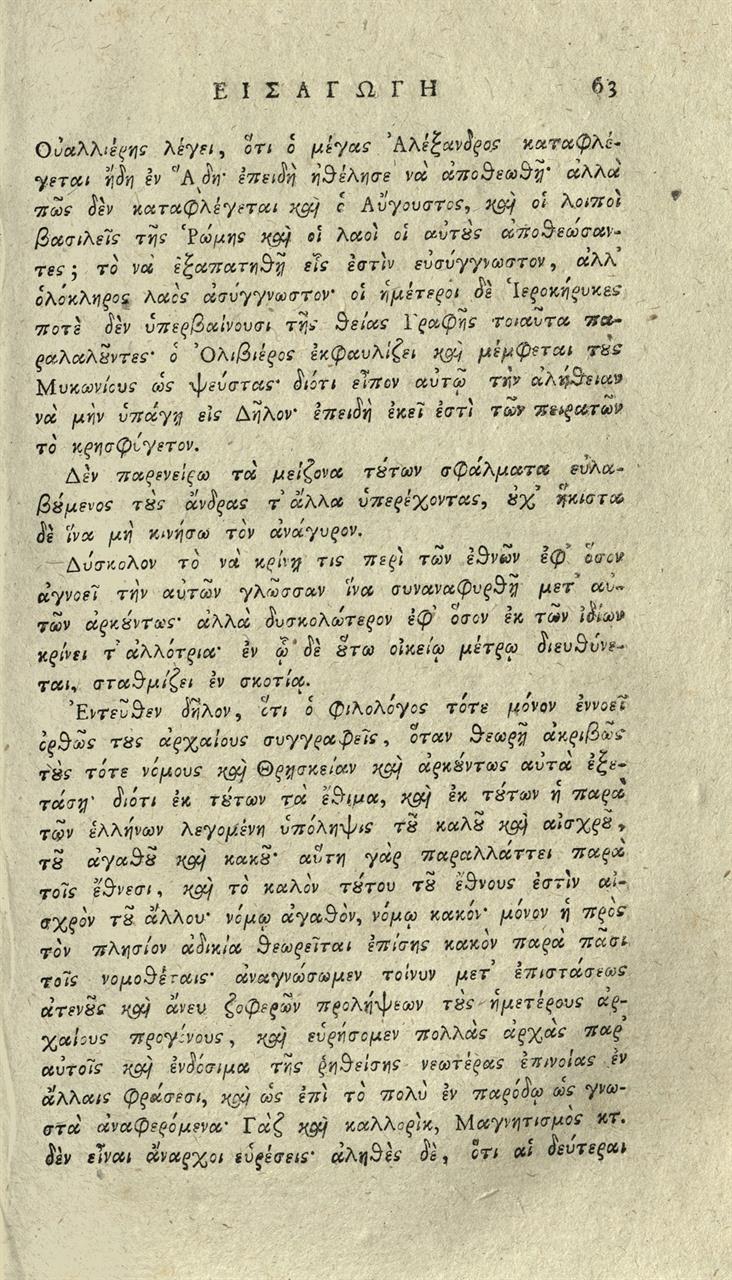 ΕΙΣΑΓΩΓΗ 63
Οὐαλλιέρης λέγει, ὅτι ὁ μέγας Ἀλέξανδρος καταφλέ-
γεται ἤδη ἐν ᾍδῃ· ἐπειδὴ ἠθέλησε νὰ ἀποθεωθῇ· ἀλλὰ
πῶς δὲν καταφλέγεται καὶ ὁ Αὔγουστος, καὶ οἱ λοιποὶ
βασιλεῖς τῆς Ῥώμης καὶ οἱ λαοὶ οἱ αὐτοὺς ἀποθεώσαν-
τες; τὸ νὰ ἐξαπατηθῇ εἷς ἐστὶν εὐσύγγνωστον, ἀλλ'
ὁλόκληρος λαὸς ἀσύγγνωστον· οἱ ἡμέτεροι δὲ Ἱεροκήρυκες
ποτὲ δὲν ὑπερβαίνουσι τῆς θείας Γραφῆς τοιαῦτα πα-
ραλαλοῦντες· ὁ Ὀλιβιέρος ἐκφαυλίζει καὶ μέμφεται τοὺς
Μυκωνίους ὡς ψεύστας· διότι εἶπον αὐτῷ τὴν ἀλήθειαν
νὰ μὴν ὑπάγῃ εἰς Δῆλον· ἐπειδὴ ἐκεῖ ἐστὶ τῶν πειρατῶν
τὸ κρησφύγετον.
Δὲν παρενείρω τὰ μείζονα τούτων σφάλματα εὐλα-
βούμενος τοὺς ἄνδρας τ' ἄλλα ὑπερέχοντας, οὐχ' ἥκιστα
δὲ ἵνα μὴ κινήσω τὸν ἀνάγυρον.
Δύσκολον τὸ νὰ κρίνῃ τις περὶ τῶν ἐθνῶν ἐφ' ὅσον
ἀγνοεῖ τὴν αὐτῶν γλῶσσαν ἵνα συναναφυρθῇ μετ' αὐ-
τῶν ἀρκούντως· ἀλλὰ δυσκολώτερον ἐφ' ὅσον ἐκ τῶν ἰδίων
κρίνει τ' ἀλλότρια· ἐν ᾧ δὲ οὕτω οἰκείῳ μέτρῳ διευθύνε-
ται, σταθμίζει ἐν σκοτίᾳ.
Ἐντεῦθεν δῆλον, ὅτι ὁ φιλολόγος τότε μόνον ἐννοεῖ
ὀρθῶς τοὺς ἀρχαίους συγγραφεῖς, ὅταν θεωρῇ ἀκριβῶς
τοὺς τότε νόμους καὶ Θρησκείαν καὶ ἀρκούντως αὐτὰ ἐξε-
τάσῃ· διότι ἐκ τούτων τὰ ἔθιμα, καὶ ἐκ τούτων ἡ παρὰ
τῶν ἑλλήνων λεγομένη ὑπόληψις τοῦ καλοῦ καὶ αἰσχροῦ,
τοῦ ἀγαθοῦ καὶ κακοῦ· αὕτη γὰρ παραλλάττει παρὰ
τοῖς ἔθνεσι, καὶ τὸ καλὸν τούτου τοῦ ἔθνους ἐστὶν αἰ-
σχρὸν τοῦ ἄλλου· νόμῳ ἀγαθὸν, νόμῳ κακόν· μόνον ἡ πρὸς
τὸν πλησίον ἀδικία θεωρεῖται ἐπίσης κακὸν παρὰ πᾶσι
τοῖς νομοθέταις· ἀναγνώσωμεν τοίνυν μετ' ἐπιστάσεως
ἀτενοῦς καὶ ἄνευ ζοφερῶν προλήψεων τοὺς ἡμετέρους ἀρ-
χαίους προγόνους, καὶ εὑρήσομεν πολλὰς ἀρχὰς παρ'
αὐτοῖς καὶ ἐνδόσιμα τῆς ῥηθείσης νεωτέρας ἐπινοίας ἐν
ἄλλαις φράσεσι, καὶ ὡς ἐπὶ τὸ πολὺ ἐν παρόδῳ ὡς γνω-
στὰ ἀναφερόμενα· Γὰζ καὶ καλλορὶκ, Μαγνητισμὸς κτ.
δὲν εἶναι ἄναρχοι εὑρέσεις· ἀληθὲς δὲ, ὅτι αἱ δεύτεραι